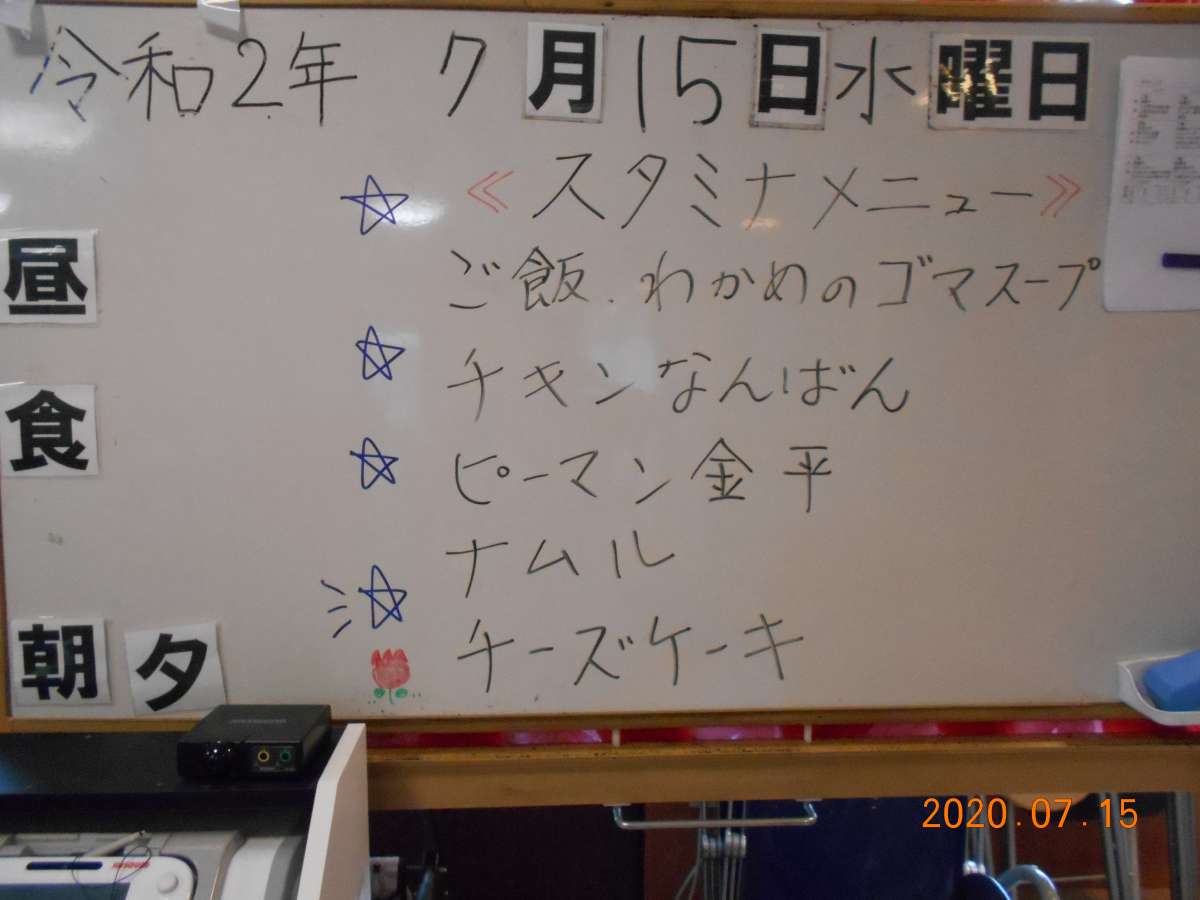 令和2年 7月15日水曜日
≪スタミナメニュー≫
ご飯.わかめのゴマスープ
チキンなんばん
ピーマン金平
ナムル
チーズケーキ
昼
食
朝
夕
2020.07.15